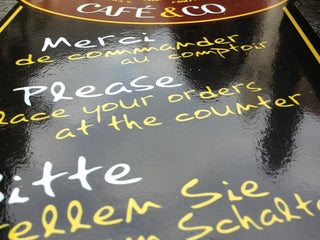 CAFÉ & CO
Merci
de commander
au comptoir
Please
lace your orders
at the counter
Bitte
ellen Sie
m Schalte